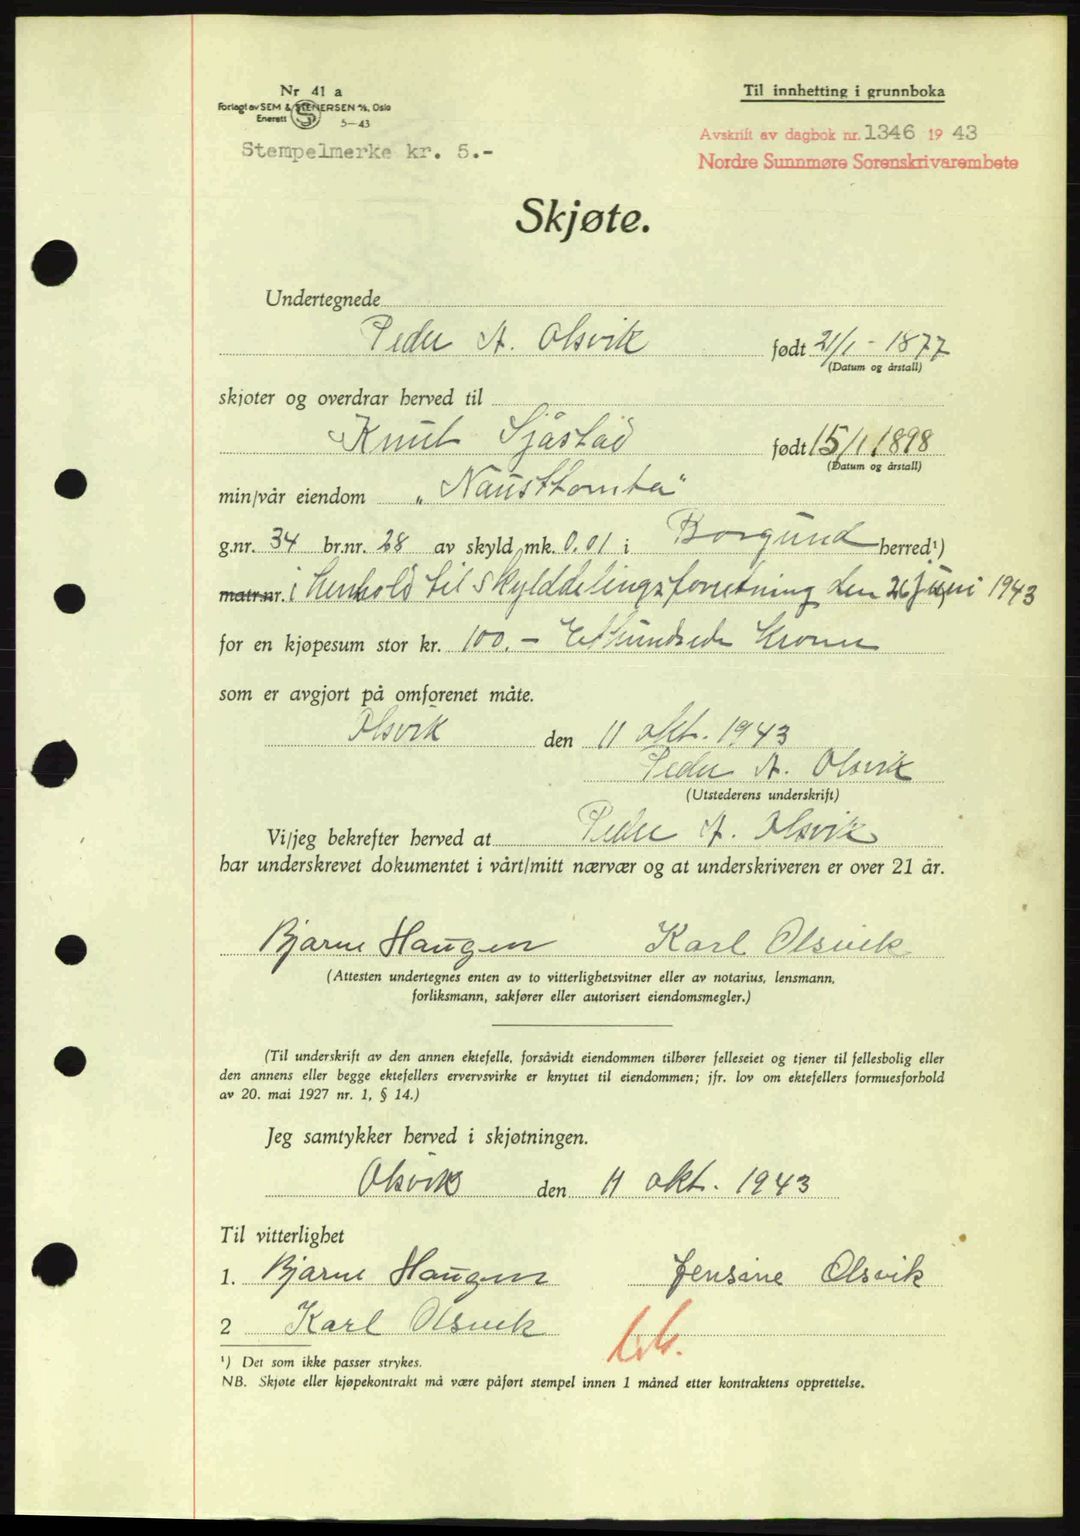 Nr 41 a
Til innhefting i grunnboka
Forlagt av SEM & STENERSEN A/S, Oslo
Enerett S 5—43
Avskrift av dagbok nr. 1346 19 43
Stempelmerke kr. 5.-
Nordre Sunnmøre Sorenskrivarembete
Skjøte.
Undertegnede
Peder A. Olsvik født 21/1 - 1877
(Datum og årstall)
skjøter og overdrar herved til
Knut Sjåstad født 15/1 1898
(Datum og årstall)
min/vår eiendom „Nausttomta"
g.nr. 34 br.nr. 28 av skyld mk. 0.01 i Borgund herred¹)
matr.nr. i henhold til skylddelingsforretning den 26 juni 1943
for en kjøpesum stor kr. 100.- Ethundrede kroner
som er avgjort på omforenet måte.
Olsvik den 11 okt. 1943
Peder A. Olsvik
(Utstederens underskrift)
Vi/jeg bekrefter herved at Peder A. Olsvik
har underskrevet dokumentet i vårt/mitt nærvær og at underskriveren er over 21 år.
Bjarne Haugen Karl Olsvik
(Attesten undertegnes enten av to vitterlighetsvitner eller av notarius, lensmann,
forliksmann, sakfører eller autorisert eiendomsmegler.)
(Til underskrift av den annen ektefelle, forsåvidt eiendommen tilhører felleseiet og tjener til fellesbolig eller
den annens eller begge ektefellers ervervsvirke er knyttet til eiendommen; jfr. lov om ektefellers formuesforhold
av 20. mai 1927 nr. 1, § 14.)
Jeg samtykker herved i skjøtningen.
Olsvik den 11 okt. 1943
Til vitterlighet
1. Bjarne Haugen Jensine Olsvik
2 Karl Olsvik
¹) Det som ikke passer strykes.
NB. Skjøte eller kjøpekontrakt må være påført stempel innen 1 måned etter kontraktens opprettelse.